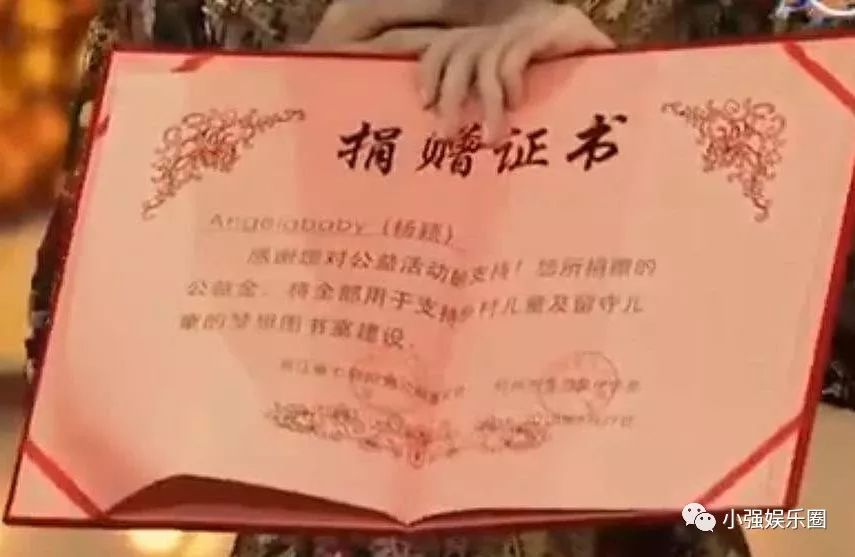 捐赠证书
Angelababy (杨颖)
感谢您对公益活动的支持！您所捐赠的
公益金，将全部用于支持乡村儿童及留守儿
童的梦想图书室建设。
小强娱乐圈